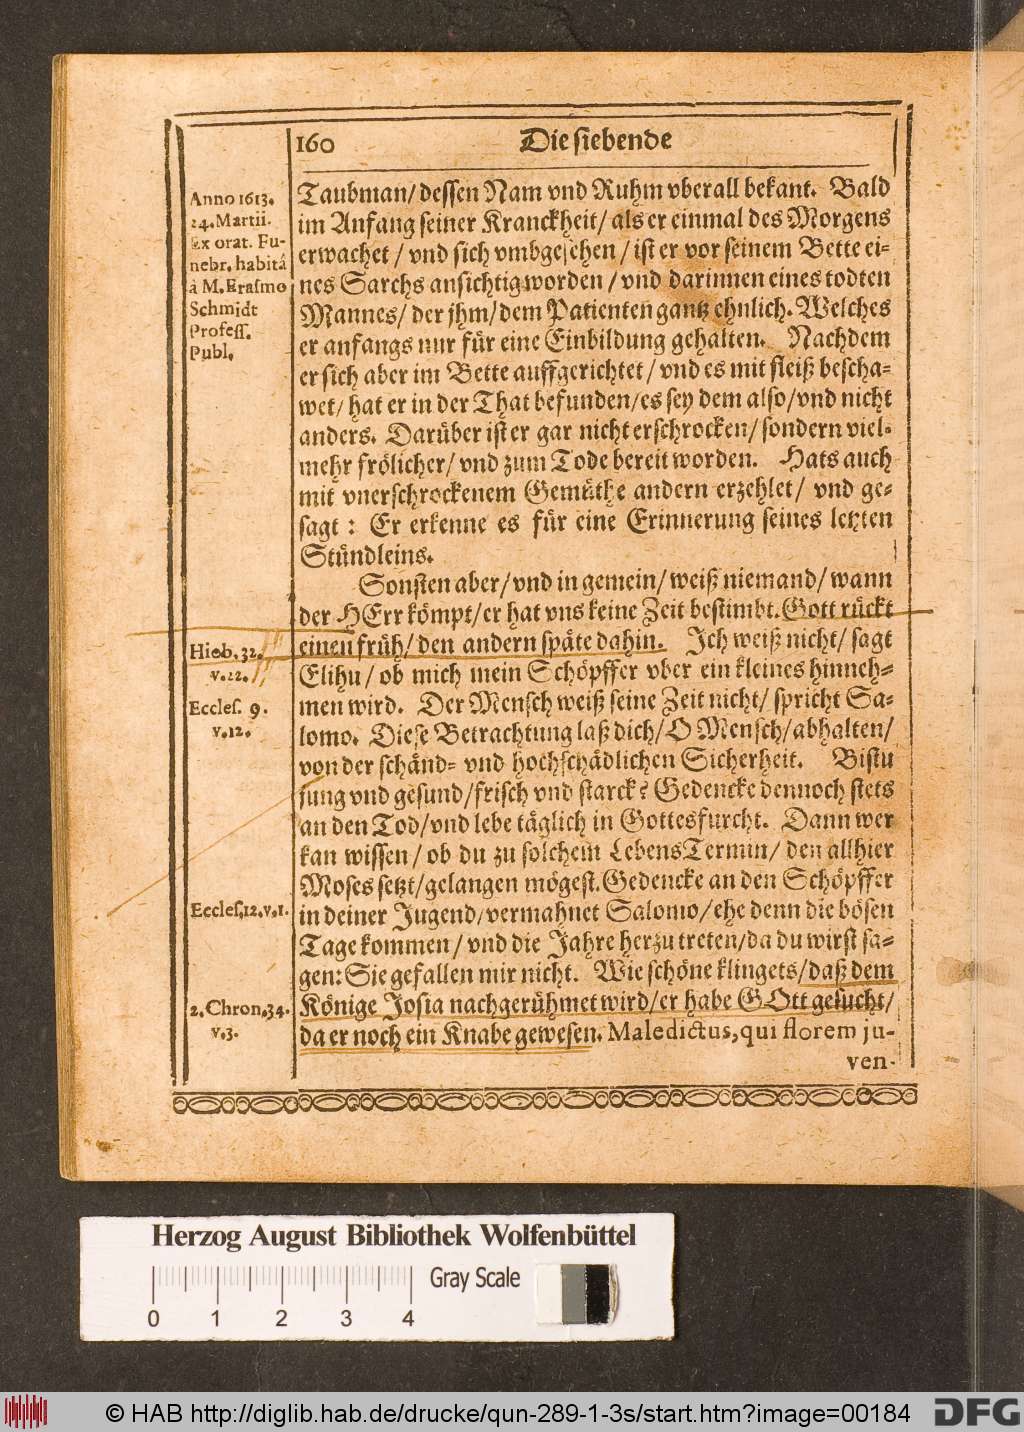 160
Die siebende
Anno 1613.
24. Martii.
Ex orat. Fu-
nebr. habitâ
à M. Erasmo
Schmidt
Profess.
Publ.
Taubman/ dessen Nam vnd Ruhm vberall bekant. Bald
im Anfang seiner Kranckheit/ als er einmal des Morgens
erwachet / vnd sich vmbgesehen / ist er vor seinem Bette ei-
nes Sarchs ansichtig worden / vnd darinnen eines todten
Mannes/ der jhm/ dem Patienten gantz ehnlich. Welches
er anfangs nur für eine Einbildung gehalten. Nachdem
er sich aber im Bette auffgerichtet / vnd es mit fleiß bescha-
wet/ hat er in der That befunden/ es sey dem also/ vnd nicht
anders. Darüber ist er gar nicht erschrocken/ sondern viel-
mehr frölicher/ vnd zum Tode bereit worden. Hats auch
mit vnerschrockenem Gemüthe andern erzehlet/ vnd ge-
sagt : Er erkenne es für eine Erinnerung seines letzten
Stündleins.
Sonsten aber/ vnd in gemein/ weiß niemand/ wann
der HErr kömpt/ er hat vns keine Zeit bestimbt. Gott rückt
einen früh/ den andern späte dahin. Ich weiß nicht/ sagt
Elihu / ob mich mein Schöpffer vber ein kleines hinneh-
men wird. Der Mensch weiß seine Zeit nicht/ spricht Sa-
lomo. Diese Betrachtung laß dich/ O Mensch/ abhalten/
von der schänd- vnd hochschädlichen Sicherheit. Bistu
jung vnd gesund/ frisch vnd starck? Gedencke dennoch stets
an den Tod/ vnd lebe täglich in Gottesfurcht. Dann wer
kan wissen / ob du zu solchem LebensTermin/ den allhier
Moses setzt/ gelangen mögest. Gedencke an den Schöpffer
in deiner Jugend/ vermahnet Salomo/ ehe denn die bösen
Tage kommen / vnd die Jahre herzu treten/ da du wirst sa-
gen: Sie gefallen mir nicht. Wie schöne klingets/ daß dem
Könige Josia nachgerühmet wird/ er habe GOtt gesucht/
da er noch ein Knabe gewesen. Maledictus, qui florem ju-
ven-
Hieb. 32.
v. 22.
Eccles. 9.
v. 12.
Eccles. 12. v. 1.
2. Chron. 34.
v. 3.
Herzog August Bibliothek Wolfenbüttel
Gray Scale
0 1 2 3 4
© HAB http://diglib.hab.de/drucke/qun-289-1-3s/start.htm?image=00184
DFG